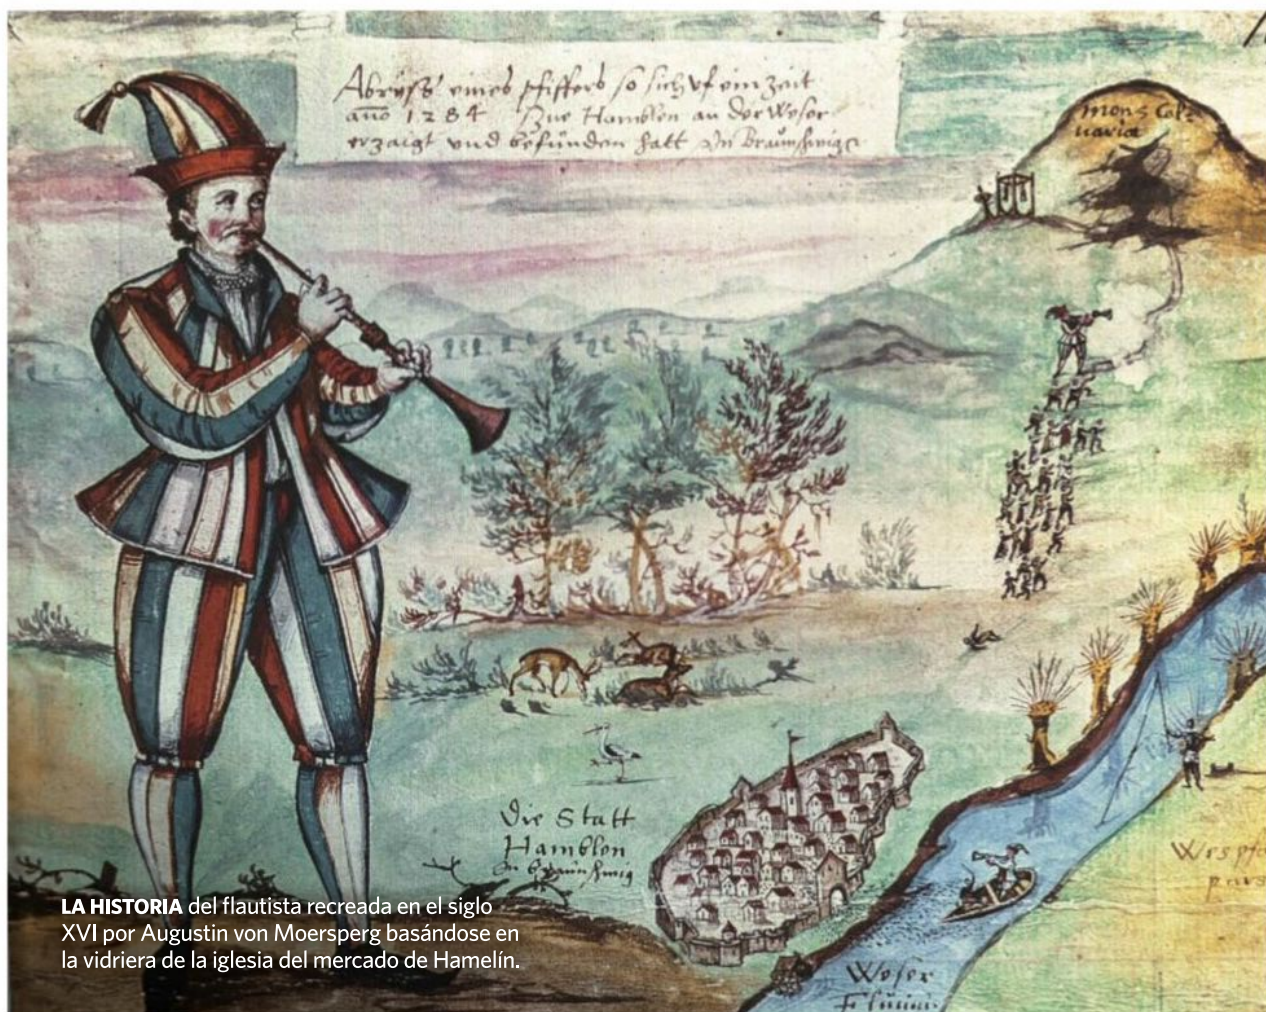 Abryss eines pfiffers so sich vf ein zeit
año 1284 Zue Hamblen an der Weser
erzaigt und befunden hatt In Braunschwig
mons Cal=
uaria
Die Statt
Hamblen
In braunschwig
Weser
LA HISTORIA del flautista recreada en el siglo
XVI por Augustin von Moersperg basándose en
la vidriera de la iglesia del mercado de Hamelín.